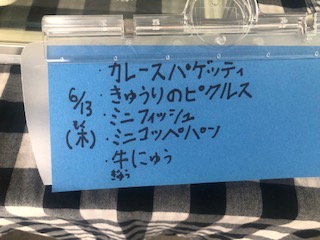 6/13
(木)
もく
・カレースパゲッティ
・きゅうりのピクルス
・ミニフィッシュ
・ミニコッペパン
・牛にゅう
ぎゅう